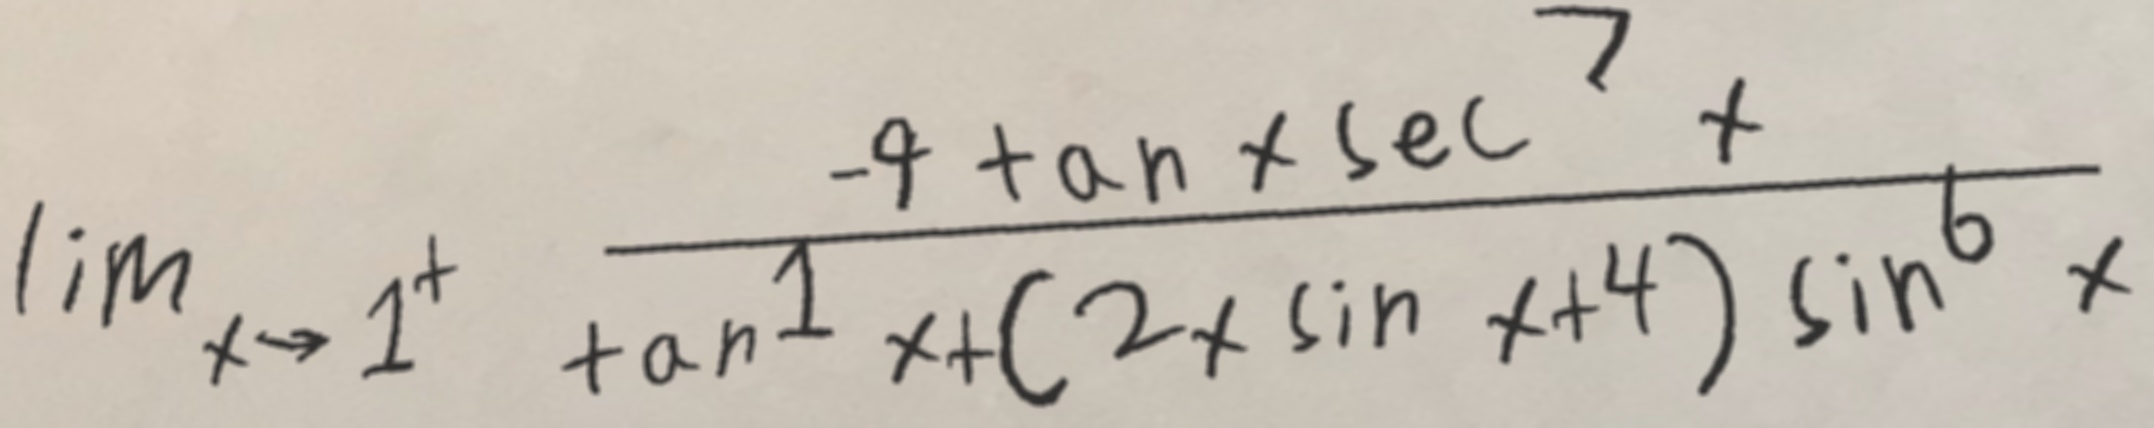 \lim_{x \to 1^+} \frac{-9 \tan x \sec^7 x}{\tan^1 x + (2x \sin x + 4) \sin^6 x}